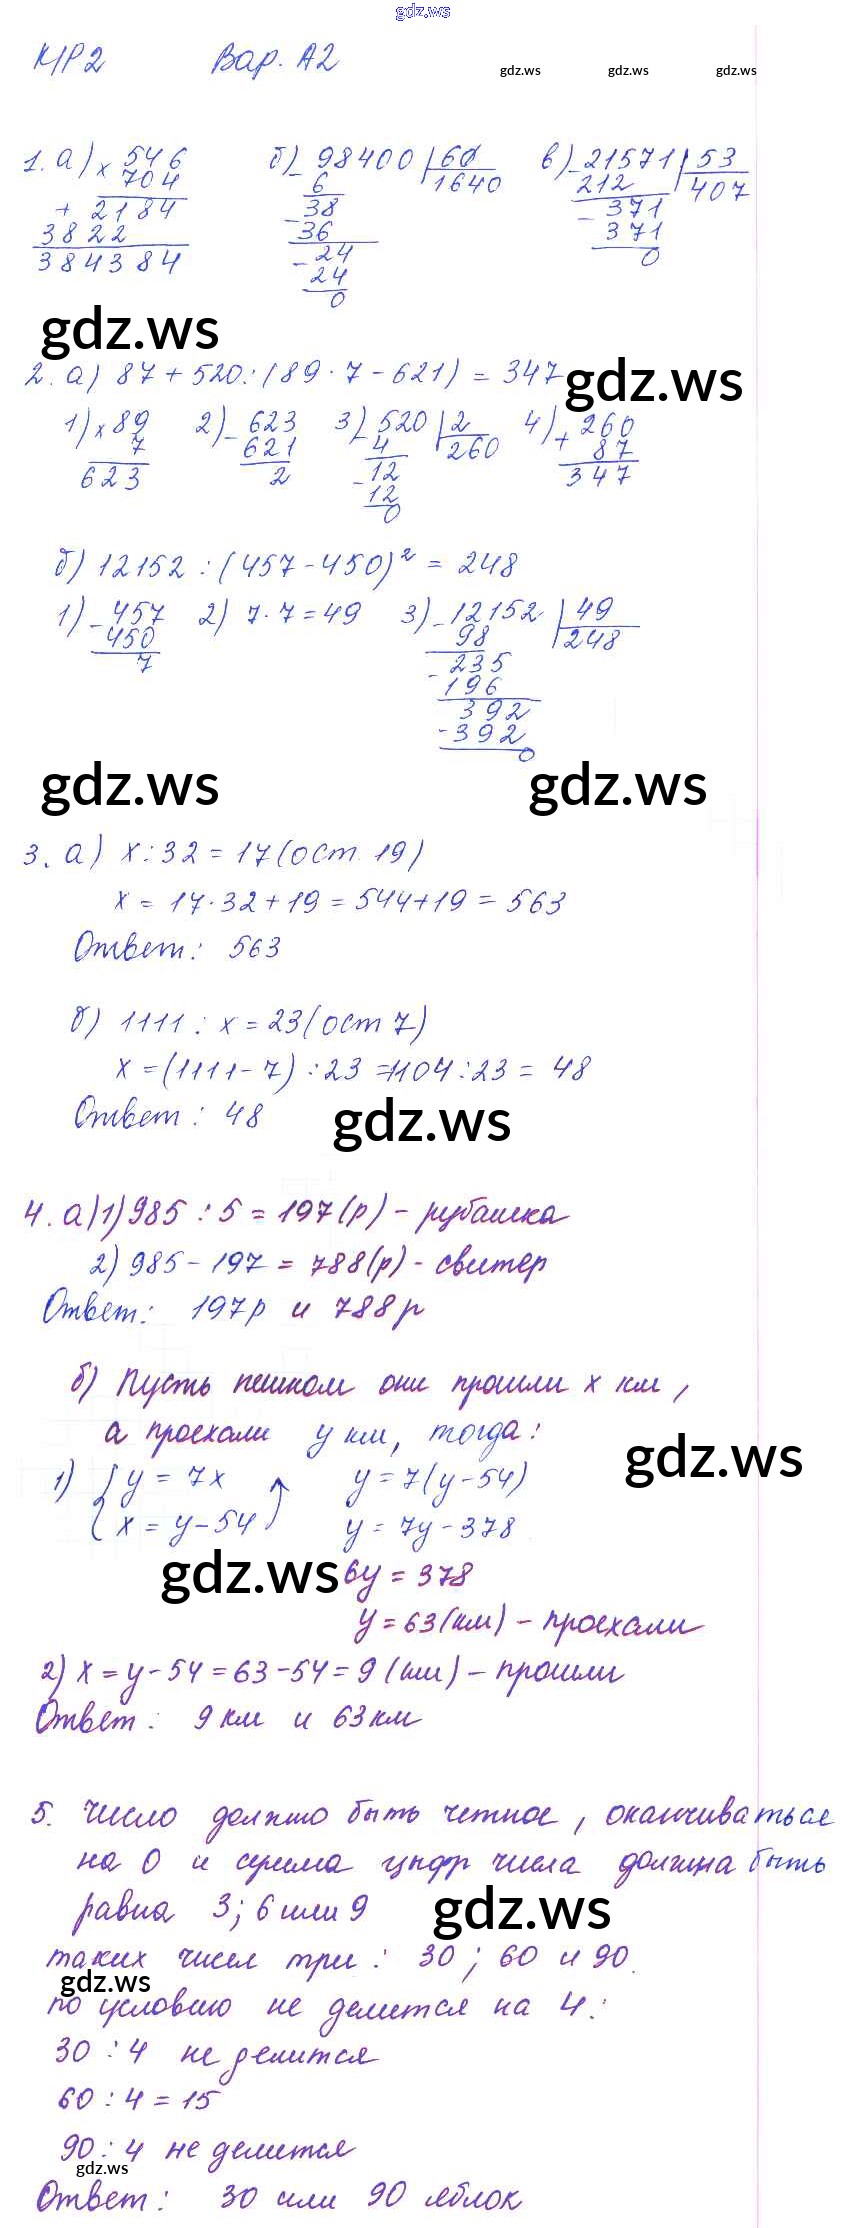 gdz.ws
К/Р2 Вар. А2
gdz.ws gdz.ws gdz.ws
1. а) × 546 б) - 98400 |60 в) - 21571 |53
704 6 1640 212 407
+ 2184 - 38 - 371
3822 36 371
384384 - 24 0
24
0
gdz.ws
2. а) 87 + 520 : (89 · 7 - 621) = 347
gdz.ws
1) × 89 2) - 623 3) - 520 |2 4) + 260
7 621 4 260 87
623 2 - 12 347
12
0
б) 12152 : (457 - 450)² = 248
1) - 457 2) 7 · 7 = 49 3) - 12152 |49
450 98 248
7 - 235
196
392
- 392
0
gdz.ws gdz.ws
3. а) x : 32 = 17 (ост. 19)
x = 17 · 32 + 19 = 544 + 19 = 563
Ответ: 563
б) 1111 : x = 23 (ост 7)
x = (1111 - 7) : 23 = 1104 : 23 = 48
Ответ: 48
gdz.ws
4. а) 1) 985 : 5 = 197 (р) - рубашка
2) 985 - 197 = 788 (р) - свитер
Ответ: 197р и 788р
б) Пусть пешком они прошли x км,
а проехали y км, тогда:
gdz.ws
1) { y = 7x y = 7(y - 54)
x = y - 54 y = 7y - 378
gdz.ws 6y = 378
y = 63 (км) - проехали
2) x = y - 54 = 63 - 54 = 9 (км) - прошли
Ответ: 9 км и 63 км
5. Число должно быть четное, оканчиваться
на 0 и сумма цифр числа должна быть
равна 3; 6 или 9
gdz.ws
таких чисел три: 30; 60 и 90.
gdz.ws
по условию не делится на 4:
30 : 4 не делится
60 : 4 = 15
90 : 4 не делится
gdz.ws
Ответ: 30 или 90 яблок